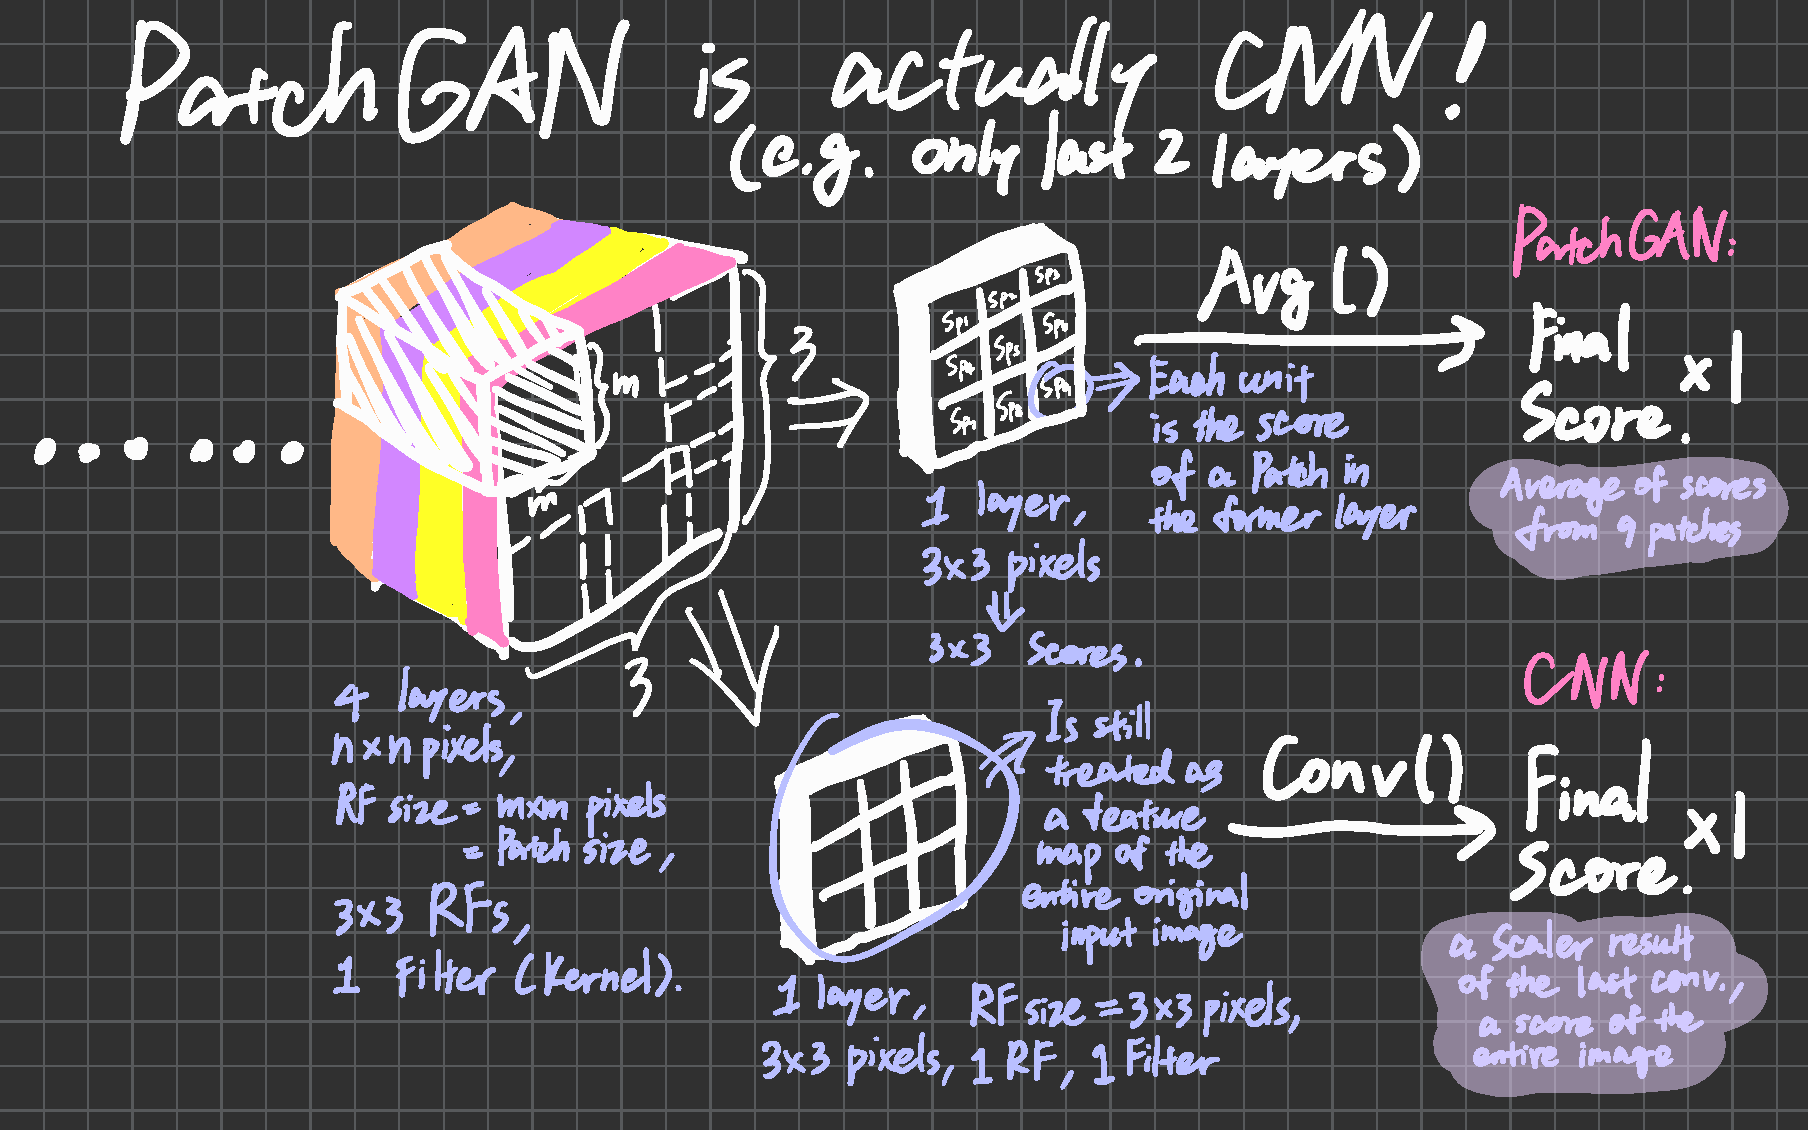 PatchGAN is actually CNN!
(e.g. only last 2 layers)
m
m
3
3
4 layers,
n×n pixels,
RF size = m×m pixels
= Patch size,
3×3 RFs,
1 Filter (Kernel).
Sp1 Sp2 Sp3
Sp4 Sp5 Sp6
Sp8 Sp9
1 layer,
3×3 pixels
3×3 Scores.
Avg()
Each unit
is the score
of a Patch in
the former layer
PatchGAN:
Final
Score. ×1
Average of scores
from 9 patches
Is still
treated as
a feature
map of the
entire original
input image
1 layer, RF size = 3×3 pixels,
3×3 pixels, 1 RF, 1 Filter
Conv()
CNN:
Final
Score. ×1
a Scaler result
of the last conv.,
a score of the
entire image